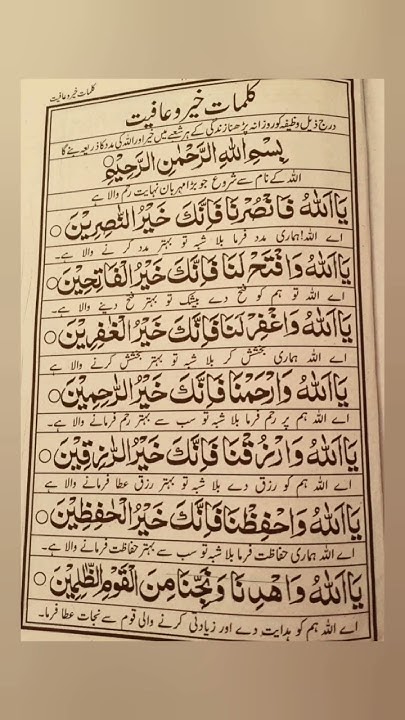 کلمات خیر و عافیت
کلمات خیر و عافیت
درج ذیل وظیفہ کو روزانہ پڑھنا زندگی کے ہر شعبے میں خیر اور اللہ کی مدد کا ذریعہ بنے گا
بِسْمِ اللهِ الرَّحْمٰنِ الرَّحِيْمِ
اللہ کے نام سے شروع جو بڑا مہربان نہایت رحم والا ہے
يَا اَللهُ فَانْصُرْنَا فَاِنَّكَ خَيْرُ النّٰصِرِيْنَ
اے اللہ! ہماری مدد فرما بلا شبہ تو بہتر مدد کرنے والا ہے۔
يَا اَللهُ وَافْتَحْ لَنَا فَاِنَّكَ خَيْرُ الْفَاتِحِيْنَ
اے اللہ تو ہم کو فتح دے بیشک تو بہتر فتح دینے والا ہے۔
يَا اَللهُ وَاغْفِرْ لَنَا فَاِنَّكَ خَيْرُ الْغٰفِرِيْنَ
اے اللہ ہماری بخشش کر بلا شبہ تو بہتر بخشش کرنے والا ہے
يَا اَللهُ وَارْحَمْنَا فَاِنَّكَ خَيْرُ الرّٰحِمِيْنَ
اے اللہ ہم پر رحم فرما بلا شبہ تو سب سے بہتر رحم فرمانے والا ہے۔
يَا اَللهُ وَارْزُقْنَا فَاِنَّكَ خَيْرُ الرّٰزِقِيْنَ
اے اللہ ہم کو رزق دے بلا شبہ تو بہتر رزق عطا فرمانے والا ہے
يَا اَللهُ وَاحْفِظْنَا فَاِنَّكَ خَيْرُ الْحٰفِظِيْنَ
اے اللہ ہماری حفاظت فرما بلا شبہ تو سب سے بہتر حفاظت فرمانے والا ہے۔
يَا اَللهُ وَاهْدِنَا وَنَجِّنَا مِنَ الْقَوْمِ الظّٰلِمِيْنَ
اے اللہ ہم کو ہدایت دے اور زیادتی کرنے والی قوم سے نجات عطا فرما۔